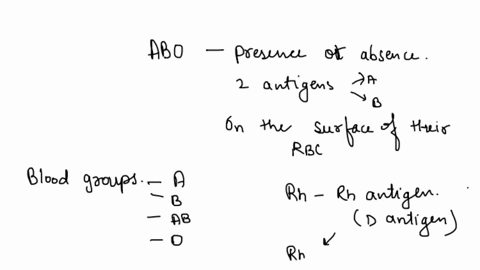 ABO — presence or absence.
2 antigens → A
→ B
On the surface of their
RBC
Blood groups. — A
— B
— AB
— O
Rh — Rh antigen.
(D antigen)
Rh ↙